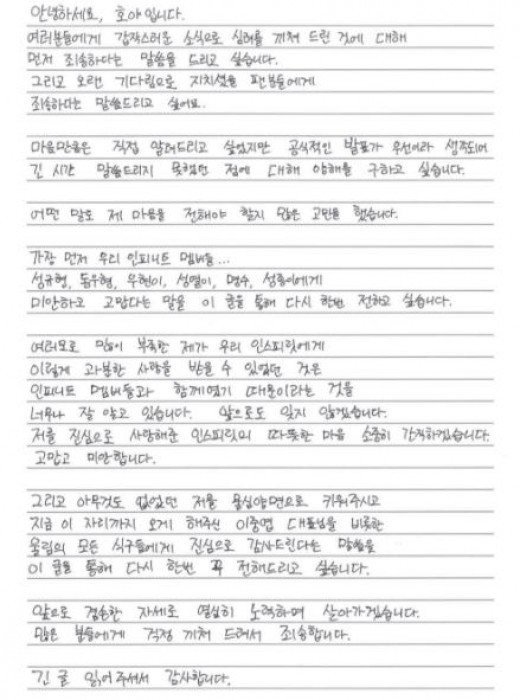 안녕하세요, 호야입니다.
여러분들에게 갑작스러운 소식으로 심려를 끼쳐 드린 것에 대해
먼저 죄송하다는 말씀을 드리고 싶습니다.
그리고 오랜 기다림으로 지치셨을 팬분들에게
죄송하다는 말씀드리고 싶어요.
마음만큼은 직접 알려드리고 싶었지만 공식적인 발표가 우선이라 생각되어
긴 시간 말씀드리지 못했던 점에 대해 양해를 구하고 싶습니다.
어떤 말로 제 마음을 전해야 할지 많은 고민을 했습니다.
가장 먼저 우리 인피니트 멤버들...
성규형, 동우형, 우현이, 성열이, 명수, 성종이에게
미안하고 고맙다는 말을 이 글을 통해 다시 한번 전하고 싶습니다.
여러모로 많이 부족한 제가 우리 인스피릿에게
이렇게 과분한 사랑을 받을 수 있었던 것은
인피니트 멤버들과 함께였기 때문이라는 것을
너무나 잘 알고 있습니다. 앞으로도 잊지 않겠습니다.
저를 진심으로 사랑해준 인스피릿의 따뜻한 마음 소중히 간직하겠습니다.
고맙고 미안합니다.
그리고 아무것도 없었던 저를 물심양면으로 키워주시고
지금 이 자리까지 오게 해주신 이중엽 대표님을 비롯한
울림의 모든 식구들에게 진심으로 감사드린다는 말씀을
이 글을 통해 다시 한번 꼭 전해드리고 싶습니다.
앞으로 겸손한 자세로 열심히 노력하며 살아가겠습니다.
많은 분들에게 걱정 끼쳐 드려서 죄송합니다.
긴 글 읽어주셔서 감사합니다.